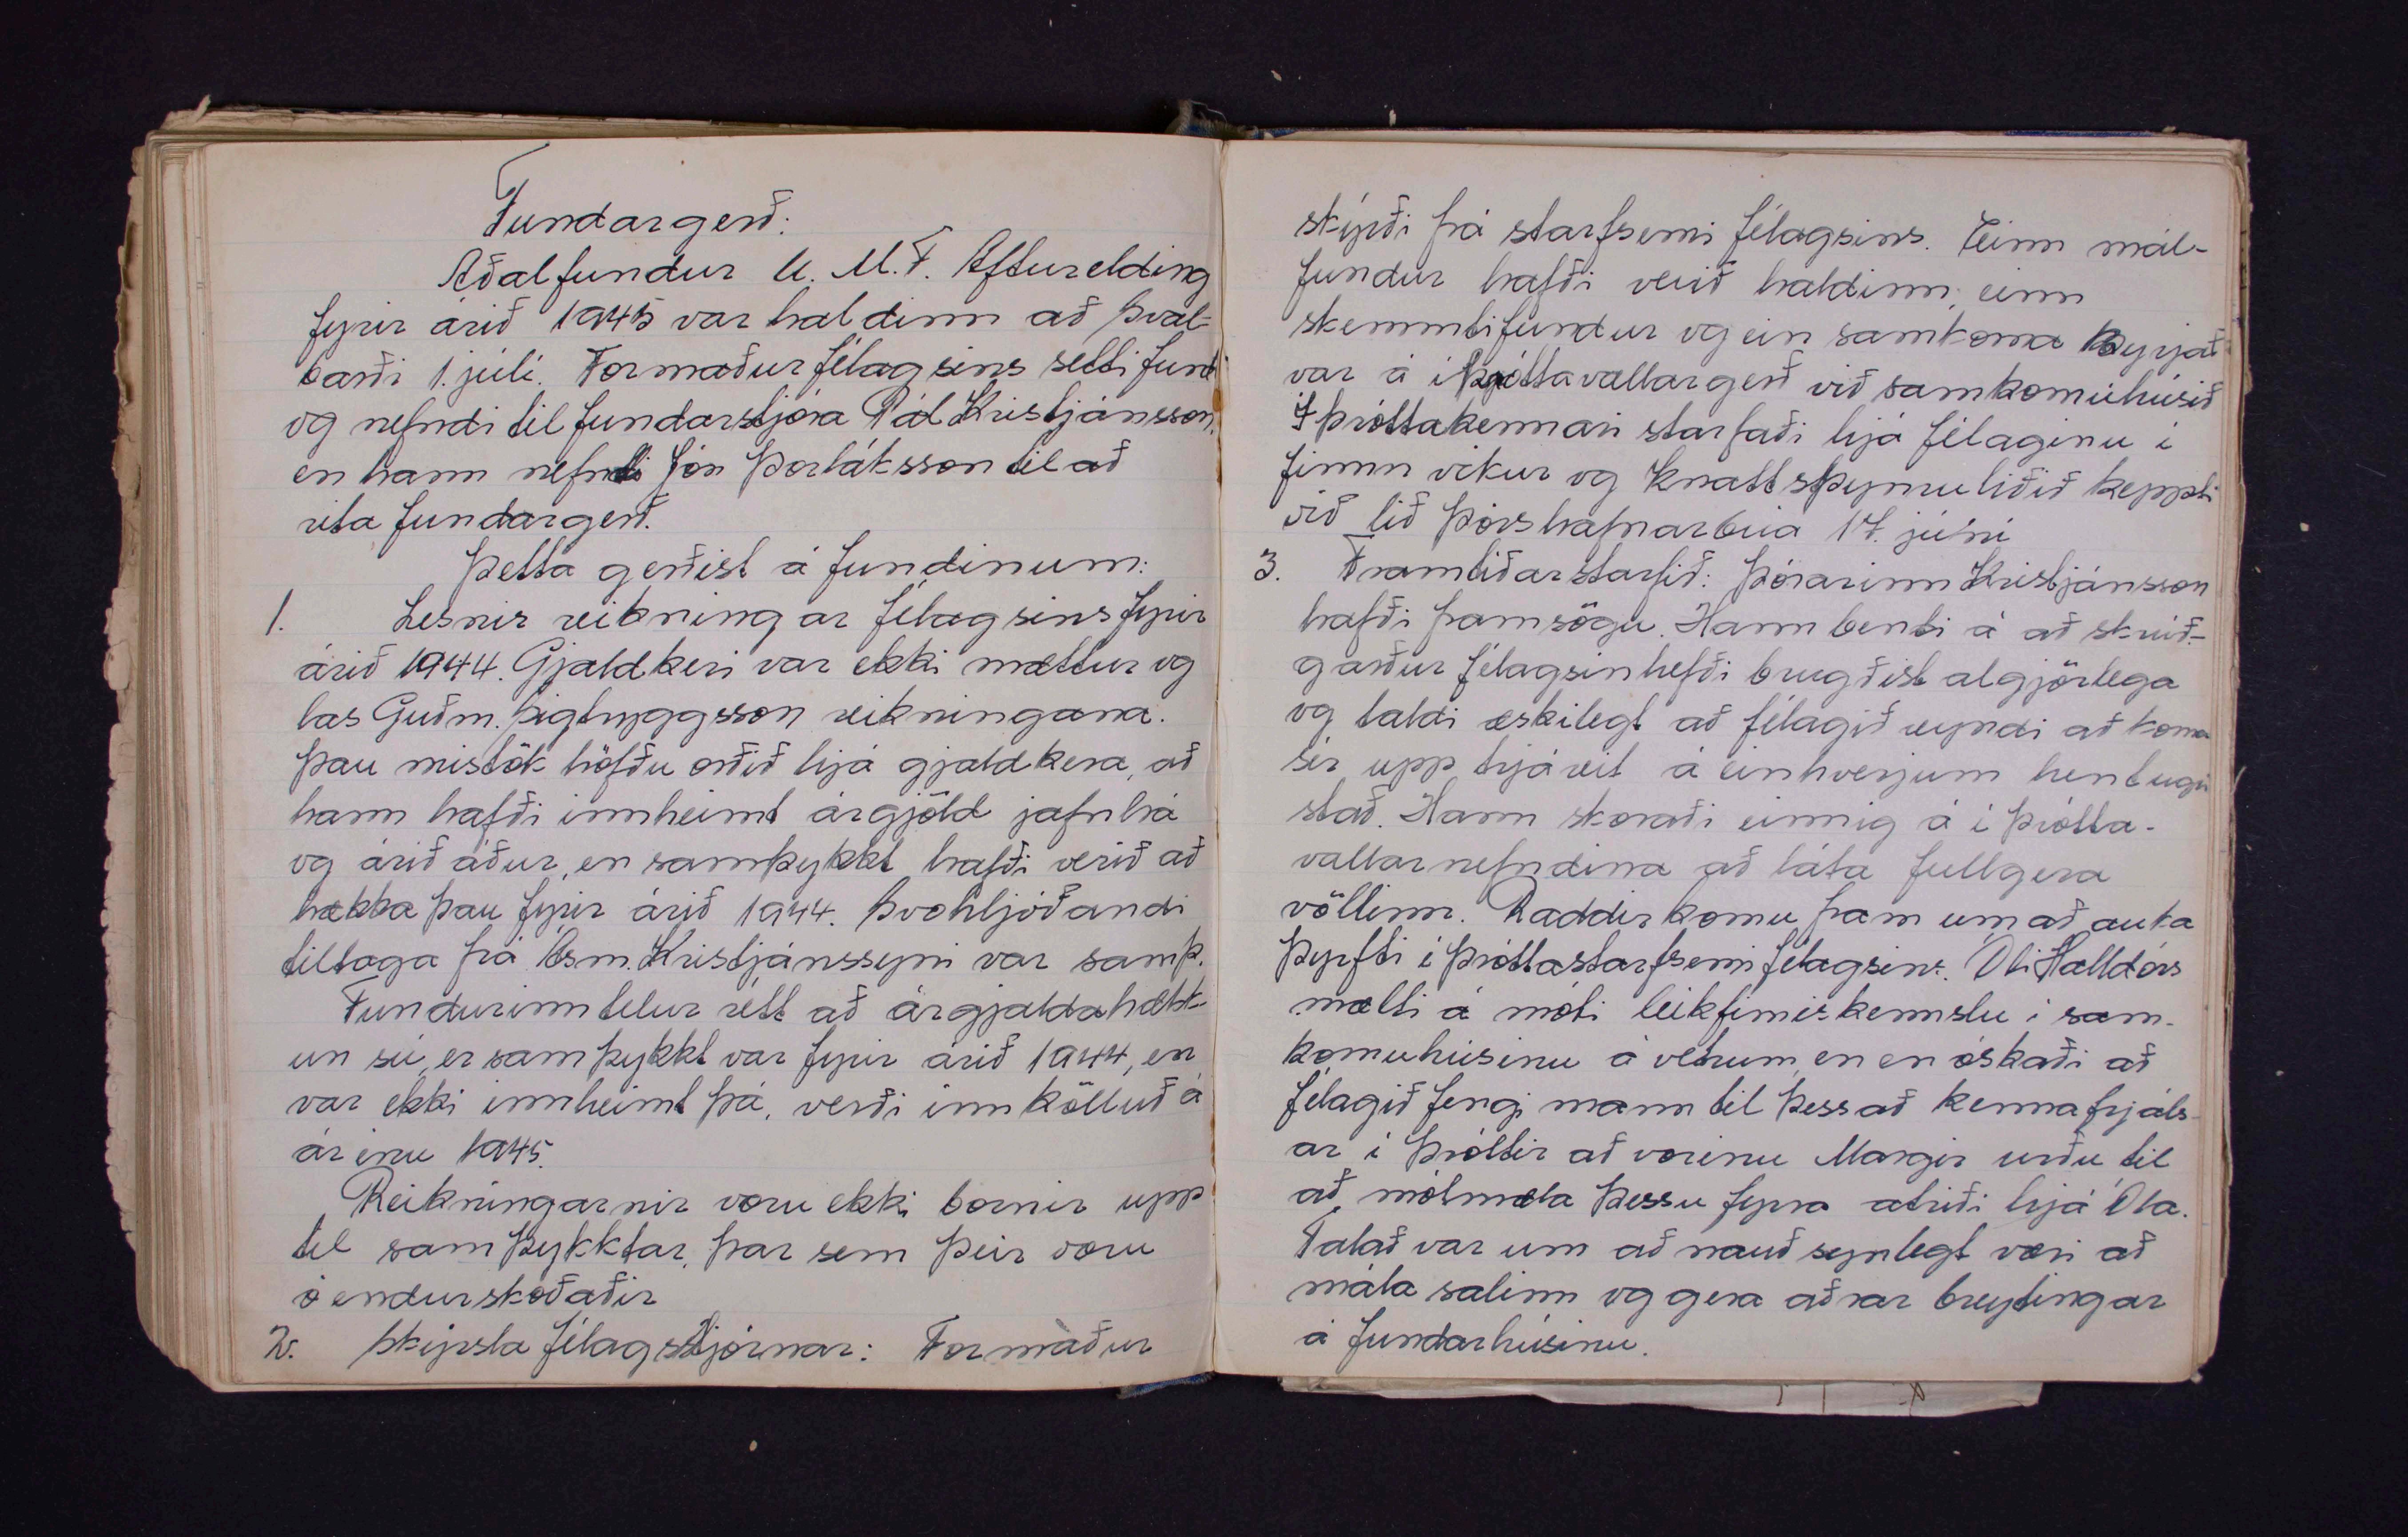 Fundargerð:
Aðalfundur U. M. F. Afturelding
fyrir árið 1945 var haldinn að Sval-
barði 1. júlí. Formaður félagsins setti fund
og nefndi til fundarstjóra Pál Kristjánsson,
en hann nefndi Jón Þorláksson til að
rita fundargerð.
Þetta gerðist á fundinum:
1. Lesnir reikningar félagsins fyrir
árið 1944. Gjaldkeri var ekki mættur og
las Guðm. Sigtryggsson reikningana.
Þau mistök höfðu orðið hjá gjaldkera, að
hann hafði innheimt árgjöld jafn há
og árið áður, en samþykkt hafði verið að
hækka þau fyrir árið 1944. Svohljóðandi
tillaga frá Ásm. Kristjánssyni var samþ.
Fundurinn telur rétt að árgjaldahækk-
un sú, er samþykkt var fyrir árið 1944, en
var ekki innheimt þá, verði innkölluð á
árinu 1945.
Reikningarnir voru ekki bornir upp
til samþykktar, þar sem þeir voru
óendurskoðaðir
2. Skýrsla félagsstjórnar: Formaður
skýrði frá starfsemi félagsins. Einn mál-
fundur hafði verið haldinn, einn
skemmtifundur og ein samkoma Byrjað
var á íþróttavallargerð við samkomuhúsið
Íþróttakennari starfaði hjá félaginu í
fimm vikur og knattspyrnuliðið keppti
við lið Þórshafnarbúa 17. júní
3. Framtíðarstarfið: Þórarinn Kristjánsson
hafði framsögu. Hann benti á að skrúð-
garður félagsin hefði brugðist algjörlega
og taldi æskilegt að félagið reyndi að koma
sér upp trjáreit á einhverjum hentugri
stað. Hann skoraði einnig á íþrótta-
vallarnefndina að láta fullgera
völlinn. Raddir komu fram um að auka
þyrfti íþróttastarfsemi félagsins. Óli Halldórs
mælti á móti leikfimiskennslu í sam-
komuhúsinu á vetrum, en en óskaði að
félagið fengi mann til þess að kenna frjáls-
ar íþróttir að vorinu Margir urðu til
að mótmæla þessu fyrra atriði hjá Óla.
Talað var um að nauðsynlegt væri að
mála salinn og gera aðrar breytingar
á fundarhúsinu.